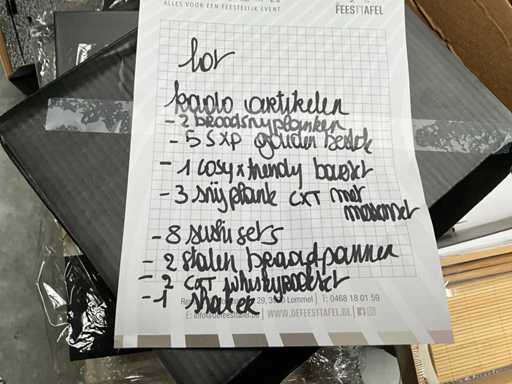 ALLES VOOR EEN FEESTELIJK EVENT
FEESTTAFEL
lor
kado artikelen
- 2 broodsnijplanken
- 5 SXP gouden bestek
- 1 cosy x trendy boxset
- 3 snijplank CXT met
messenset
- 8 sushi sets
- 2 stalen braadpannen
- 2 CXT whiskyset
- 1 shaker
29, 3920 Lommel | T: 0468 18 01 59
E: info@defeesttafel.be | WWW.DEFEESTTAFEL.BE